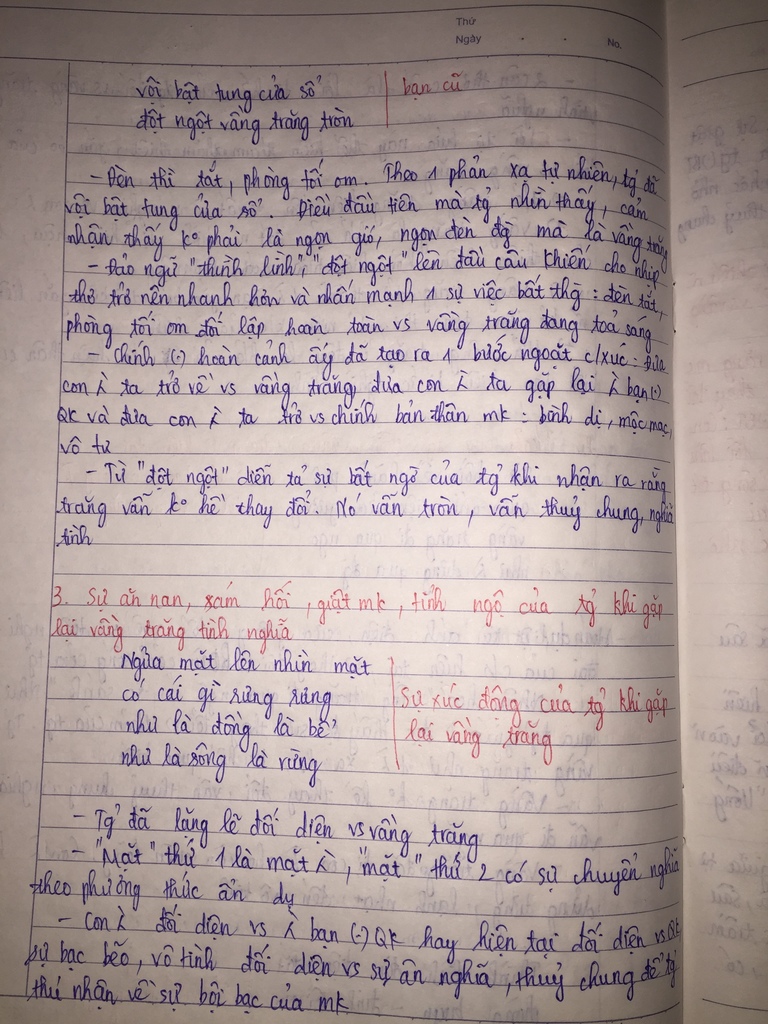 Thứ
Ngày . . No.
vội bật tung cửa sổ bạn cũ
đột ngột vầng trăng tròn
- Đèn thì tắt, phòng tối om. Theo 1 phản xạ tự nhiên, tg' đã
vội bật tung cửa sổ. Điều đầu tiên mà tg' nhìn thấy, cảm
nhận thấy k° phải là ngọn gió, ngọn đèn mà là vầng trăng
- Đảo ngữ "thình lình", "đột ngột" lên đầu câu khiến cho nhịp
thơ trở nên nhanh hơn và nhấn mạnh 1 sự việc bất thg : đèn tắt,
phòng tối om đối lập hoàn toàn vs vầng trăng đang toả sáng
- Chính (-) hoàn cảnh ấy đã tạo ra 1 bước ngoặt c/xúc : Đưa
con λ ta trở về vs vầng trăng, đưa con λ ta gặp lại λ bạn (-)
QK và đưa con λ ta trở vs chính bản thân mk : bình dị, mộc mạc,
vô tư
- Từ "đột ngột" diễn tả sự bất ngờ của tg' khi nhận ra rằng
trăng vẫn k° hề thay đổi. Nó vẫn tròn, vẫn thuỷ chung, nghĩa
tình
3. Sự ăn nan, sám hối, giật mk, tỉnh ngộ của tg' khi gặp
lại vầng trăng tình nghĩa
Ngửa mặt lên nhìn mặt
có cái gì rưng rưng
như là đồng là bể
như là sông là rừng
Sự xúc động của tg' khi gặp
lại vầng trăng
- Tg' đã lặng lẽ đối diện vs vầng trăng
- "Mặt" thứ 1 là mặt λ, "mặt" thứ 2 có sự chuyển nghĩa
theo phương thức ẩn dụ
- Con λ đối diện vs λ bạn (-) QK hay hiện tại đối diện vs QK
sự bạc bẽo, vô tình đối diện vs sự ân nghĩa, thuỷ chung để tg'
thú nhận về sự bội bạc của mk